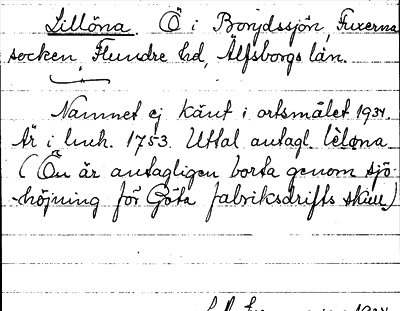 Lillöna. Ö i Bondssjön, Fuxerna
socken, Flundre hd, Älfsborgs län.
Namnet ej känt i ortsmålet 1934.
Är i huh. 1753. Uttal antagl. lilöna
(Ön är antagligen borta genom sjö-
höjning för Göta fabriksdrifts skull)
1934